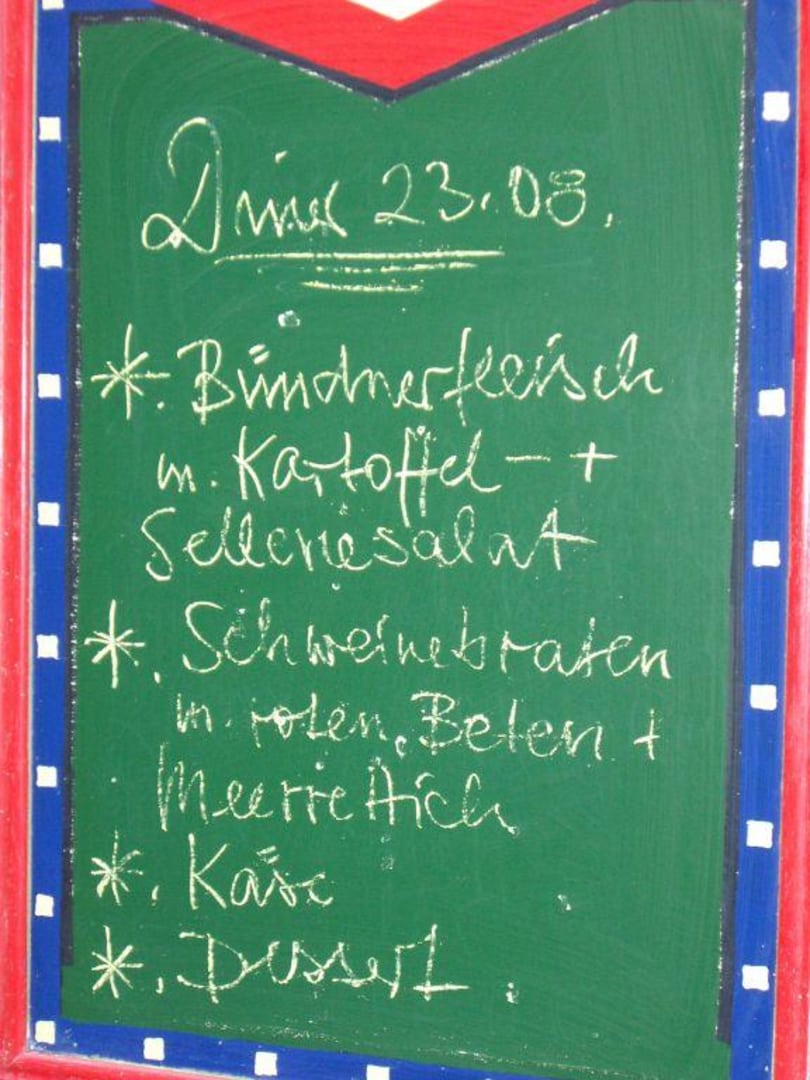 Diner 23.08.
*. Bündnerfleisch
m. Kartoffel- +
Selleriesalat
*. Schweinebraten
m. roten, Beten +
Meerrettich
*. Käse
*. Dessert.